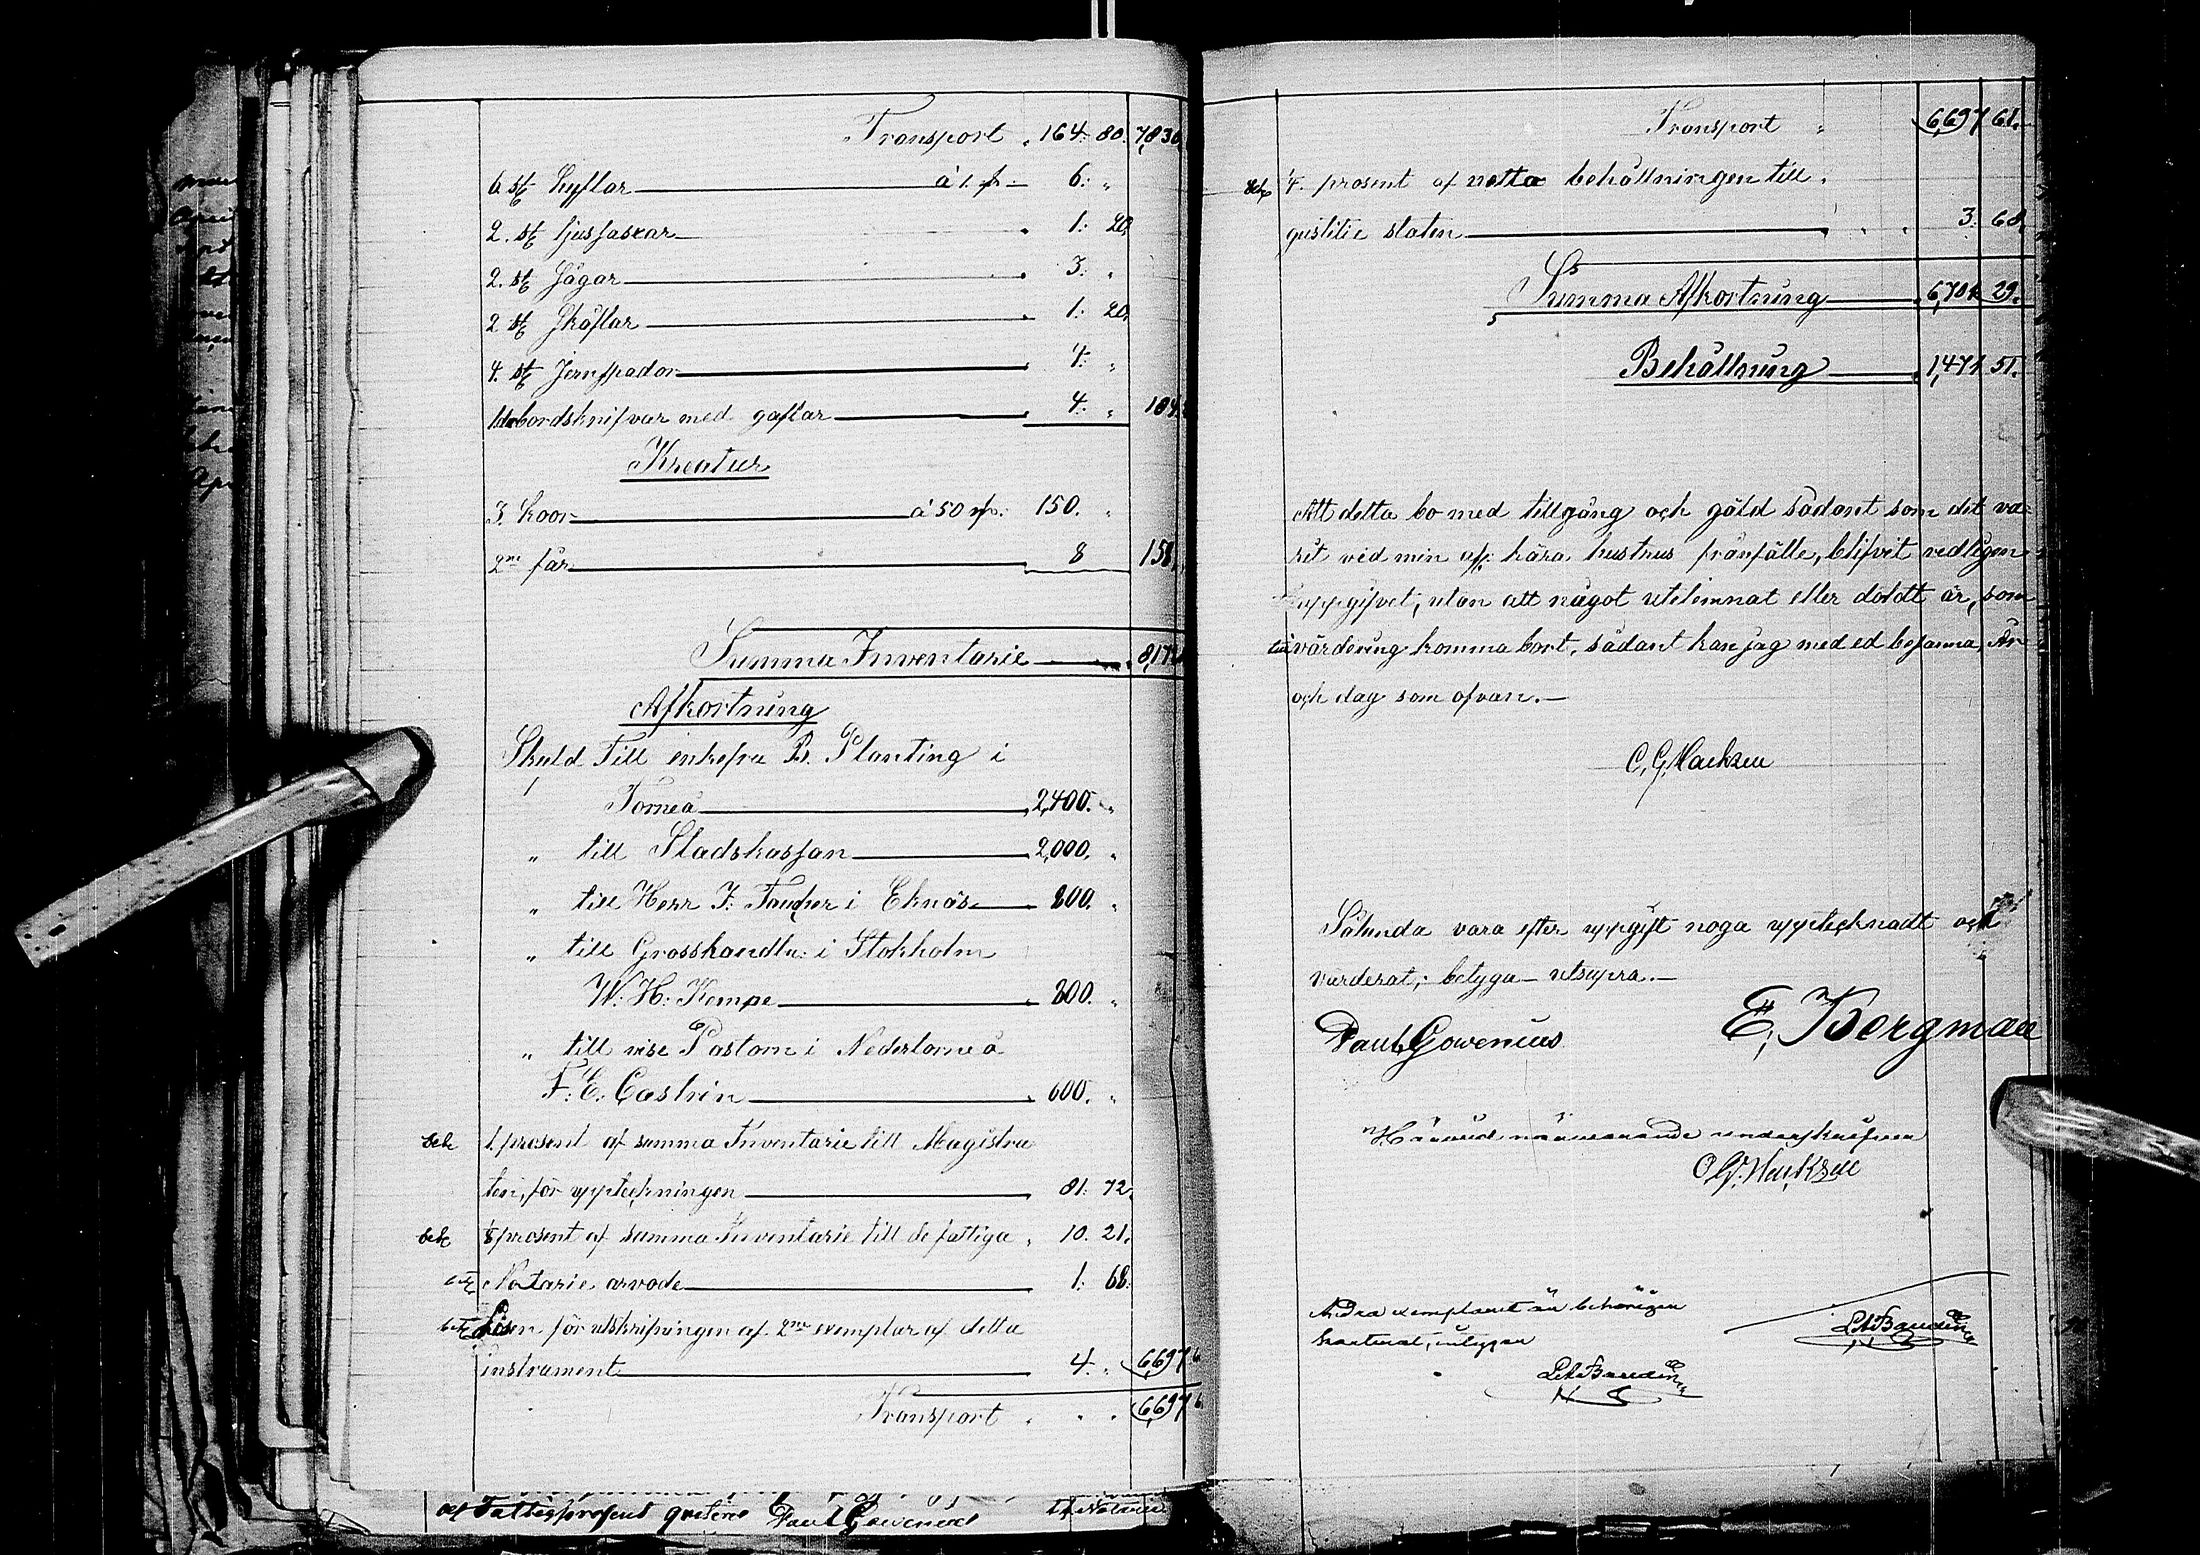 Transport . 164. 80. 7,830.
6. st hyflar á 1. 6: "
2. st ljussaxar 1: 20.
2. st Sågar 3: "
2 st Skoflar 1: 20.
4. st Jernspador 4: "
bordsknifvar med gaflar 4: " 184.
Kreatur
3. koor á 50 150. "
2ne får 8 158.
Summa Inventarie
Afkortning
Skuld Till enkefru B. Planting i
Torneå 2,400. "
" till Stadskassan 2,000. "
" till Herr F. i Eknäs 800. "
" till Grosshandln: i Stokholm
W: H: Kempe 800. "
" till vise Pastorn i Nedertorneå
F: E. Castrin 600. "
bet 1. prosent af summa Inventarie till Magistra
ten, för uppteckningen 81: 72.
bet prosent af summa Inventarie till de fattiga . 10. 21.
bet Notarie arvode 1: 68.
bet Lösen för utskrifningen af 2ne exemplar af detta
instrument 4. " 6,697
Transport . . . 6,697
af Fattigprosent Paul Gowenius
Transport " 6,697 61.
bet 4. prosent af netto behållningen till
justitie staten 3. 68.
Summa Afkortning 6,701 29.
Behållning 1,471 51.
Att detta bo med tillgång och gäld sådant som det va-
rit vid min afl: kära hustrus frånfälle, blifvit redligen
uppgifvet, utan att något utelemnat eller doldt är, som
värdering komma bort, sådant kan jag med ed besanna, År
och dag som ofvan.—
C. G. Macksen
Sålunda vara efter uppgift noga upptecknadt och
värderat, betyga – utsupra.—
Paul Gowenius E. Bergman
Härvid närvarande underskrifven
Andra exemplaret än behörigen